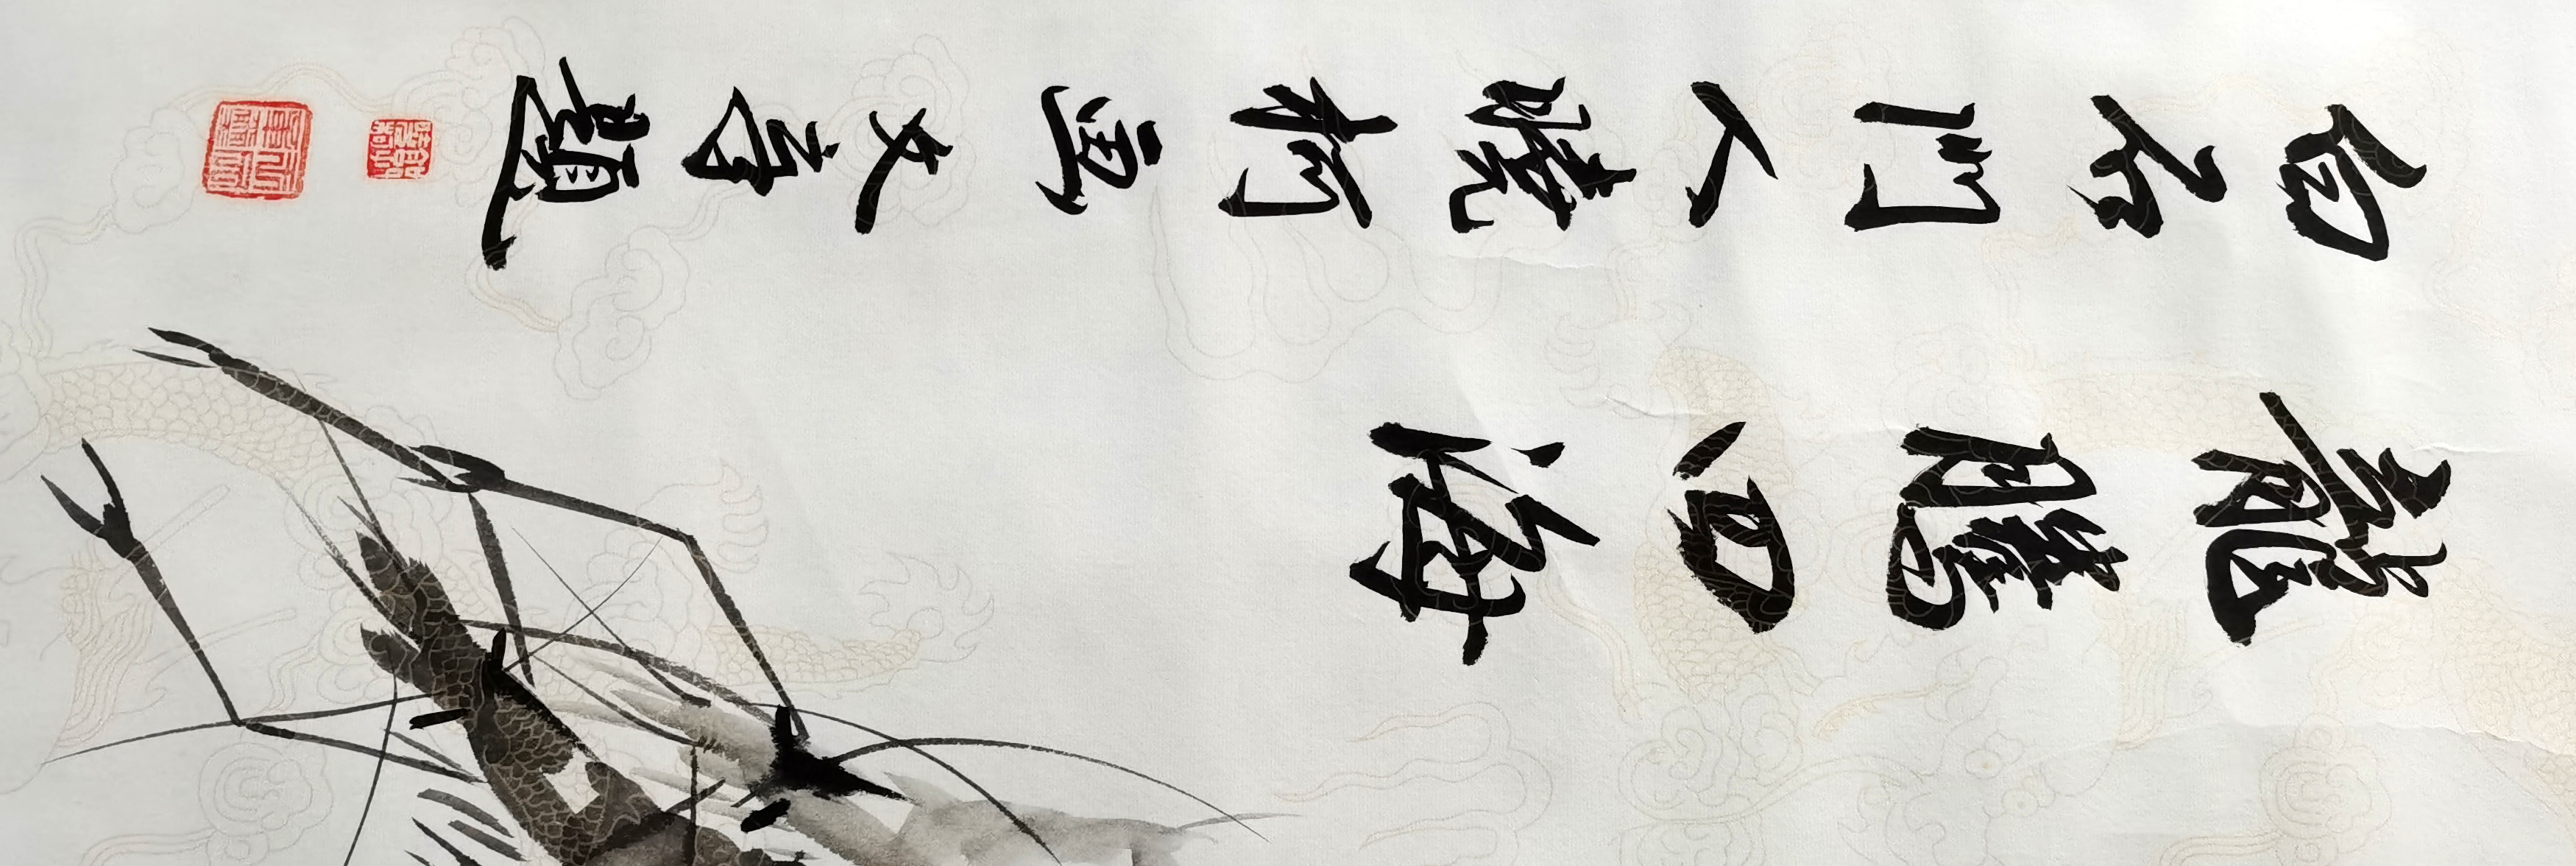 龍騰四海
白石門人曉柯寫文題